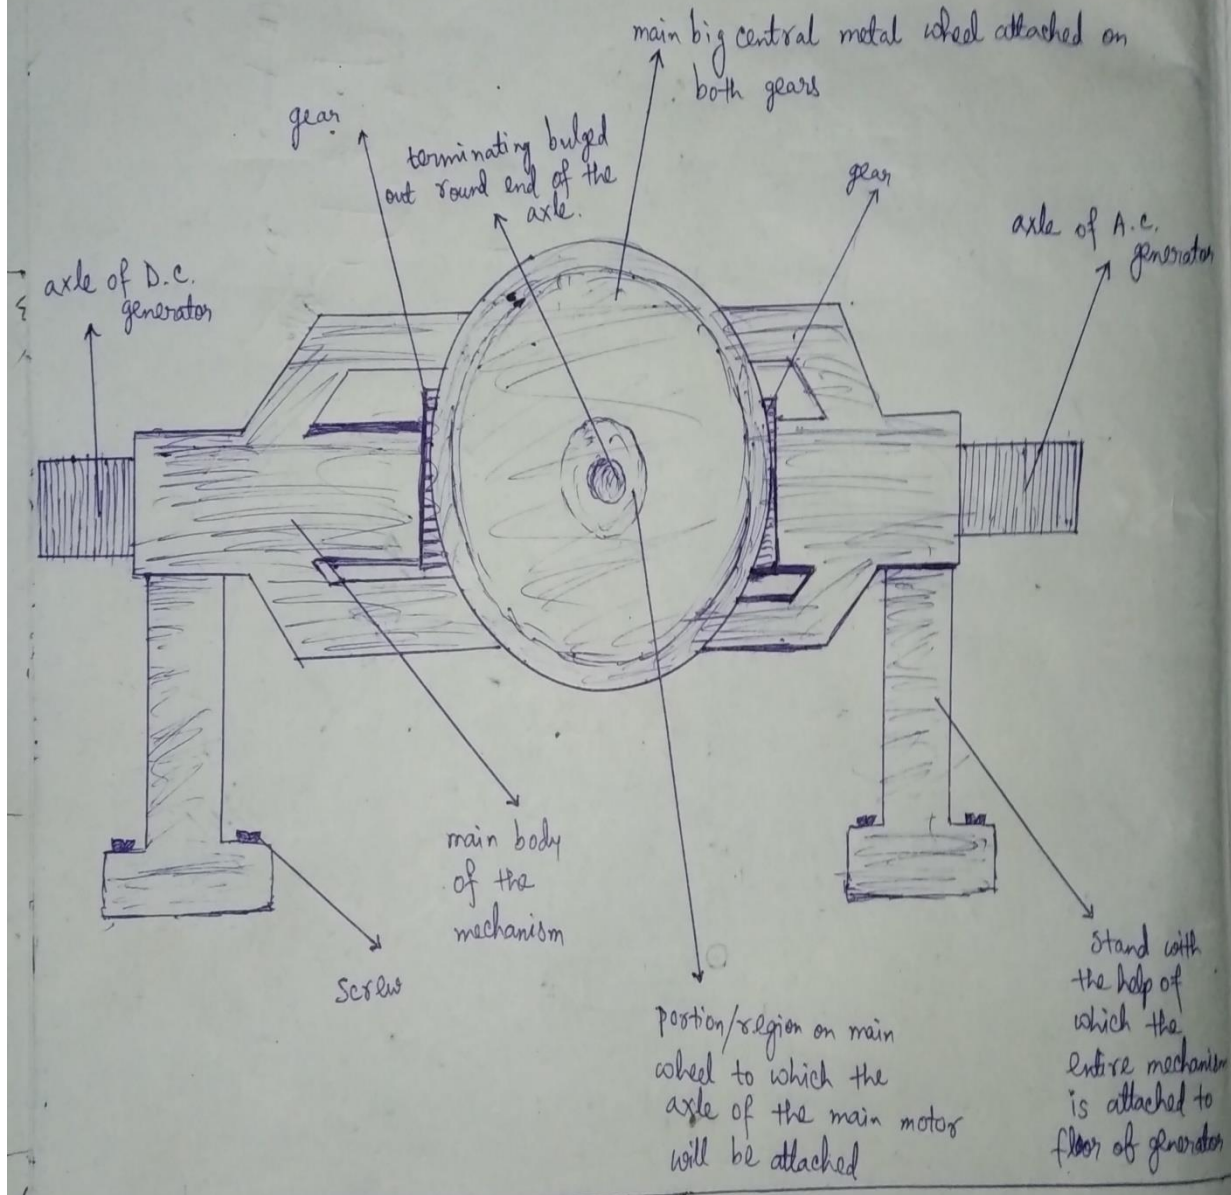 main big central metal wheel attached on
both gears
gear
terminating bulged
out round end of the
axle.
gear
axle of A.C.
generator
axle of D.C.
generator
main body
of the
mechanism
Screw
portion/region on main
wheel to which the
axle of the main motor
will be attached
Stand with
the help of
which the
entire mechanism
is attached to
floor of generator